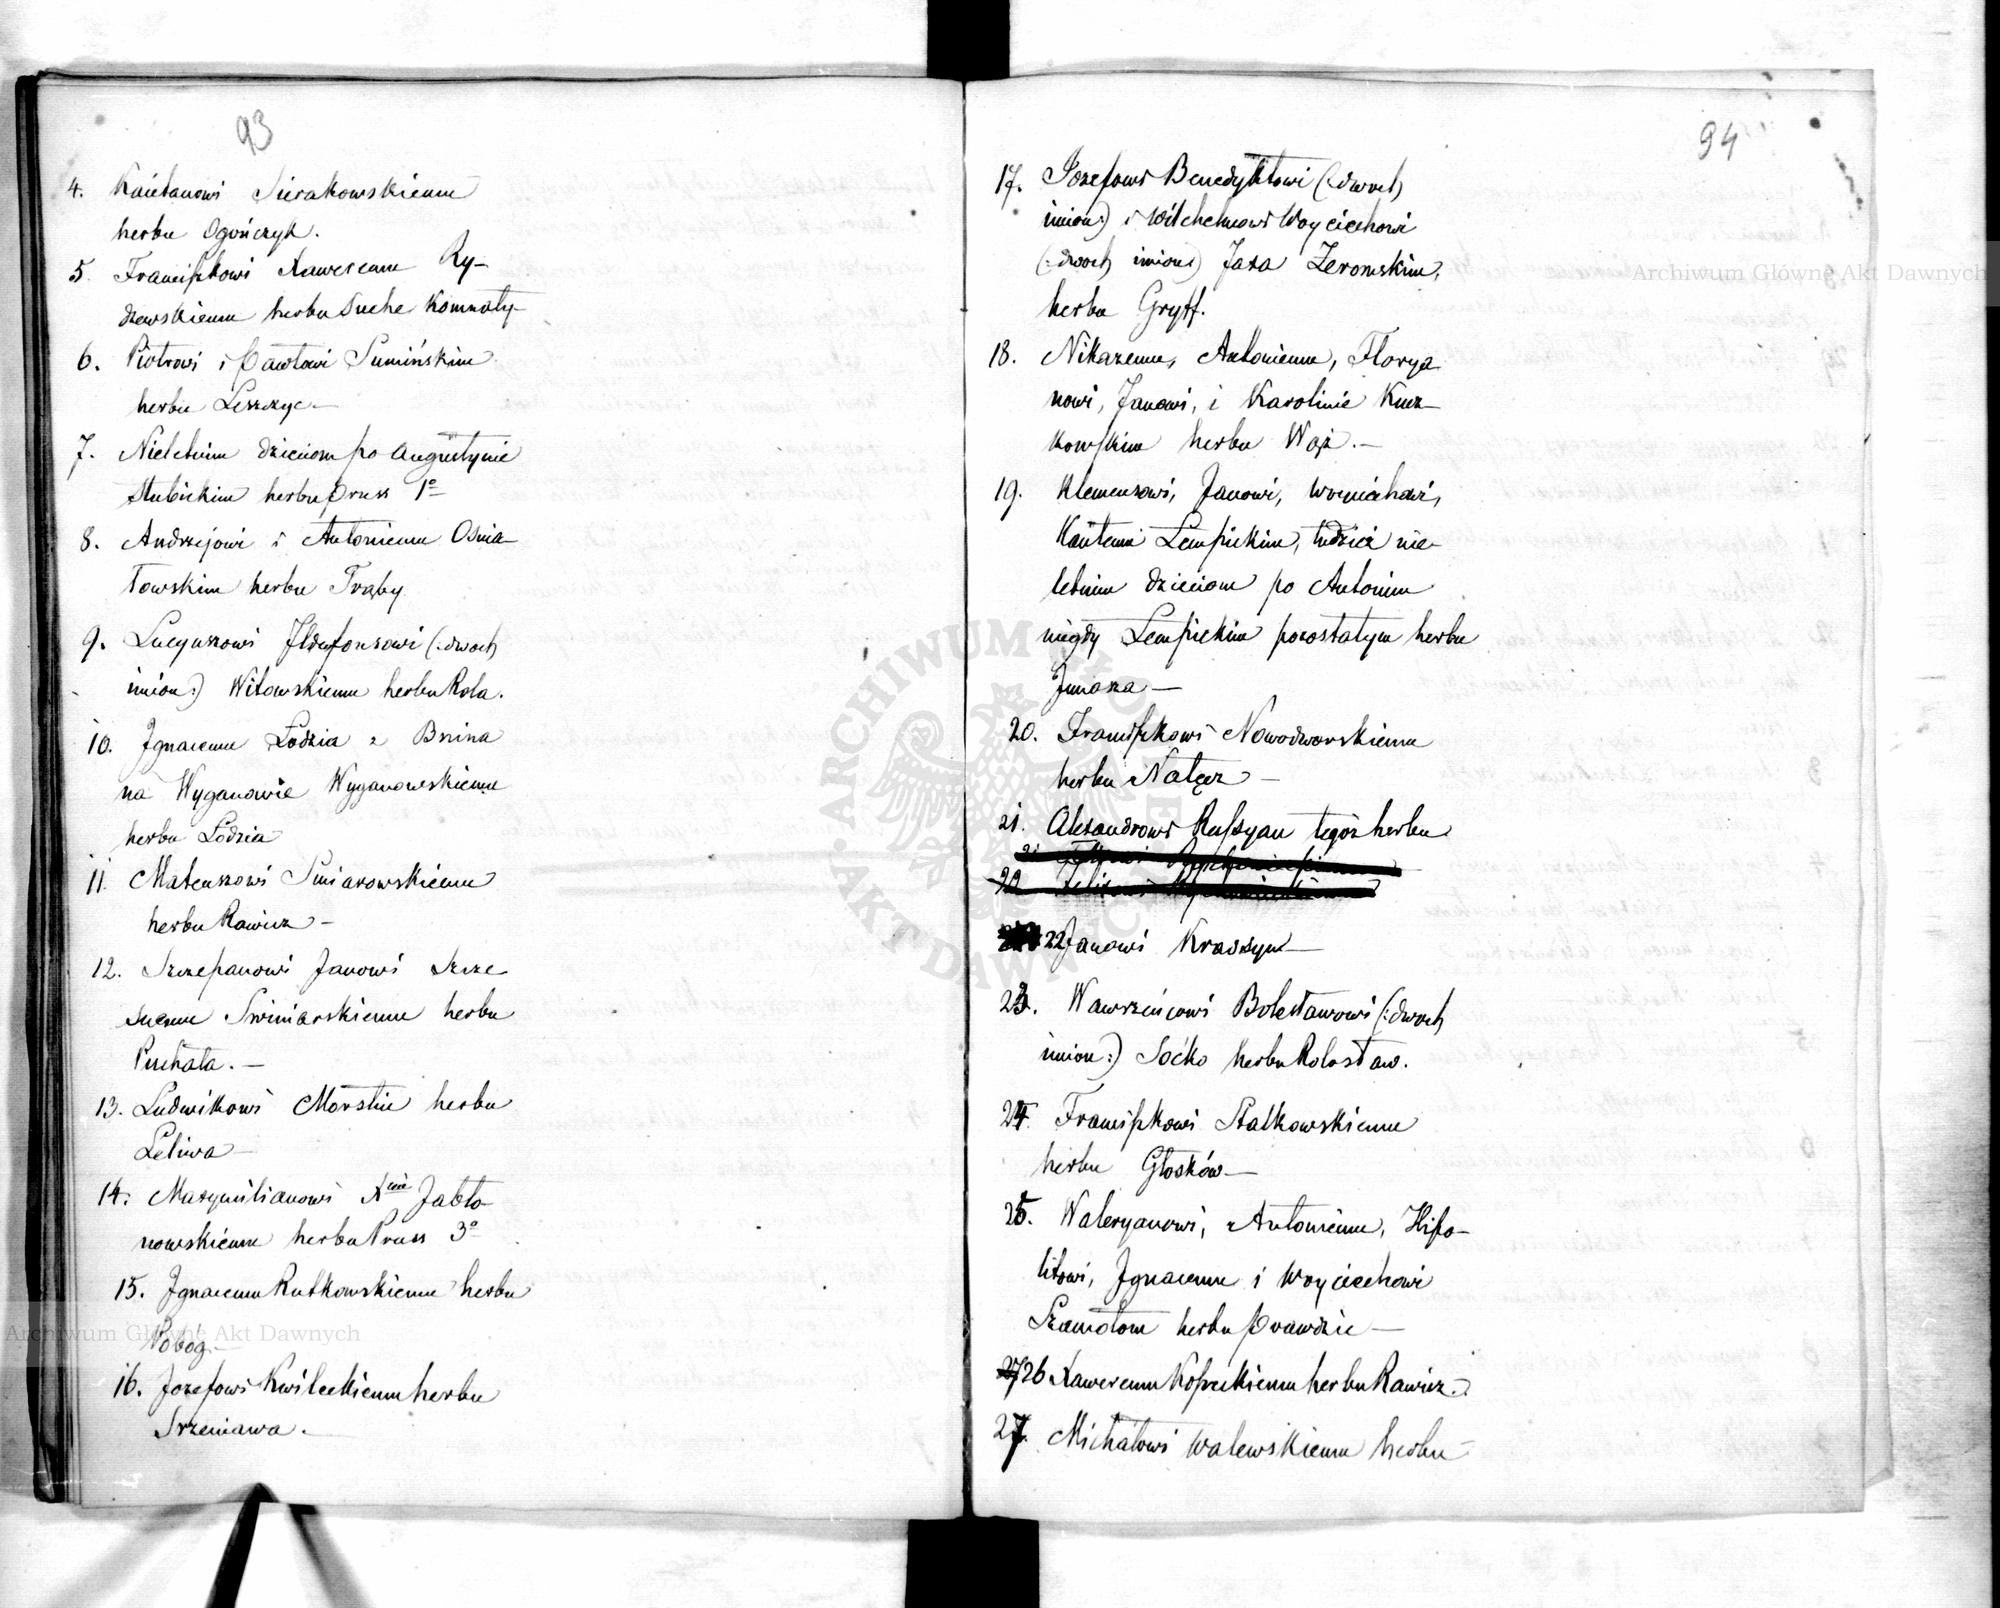 93
4. Kaietanowi Sierakowskiemu
herbu Ogończyk.
5. Franciszkowi Xaweremu Ry-
dzewskiemu herbu Suche Komnaty-
6. Piotrowi i Pawłowi Sumińskim
herbu Leszczyc —
7. Nieletnim dzieciom po Augustynie
Słubickim herbu Pruss 1o
8. Andrzejowi i Antoniemu Osnia-
towskim herbu Trąby
9. Lucyuszowi Ildefonsowi (: dwoch
imion :) Witowskiemu herbu Rola.
10. Ignacemu Łodzia z Bnina
na Wyganowie Wyganowskiemu
herbu Łodzia
11. Mateuszowi Smiarowskiemu
herbu Rawicz —
12. Szczepanowi Janowi
Swiniarskiemu herbu
Puchała. —
13. Ludwikowi Morstin herbu
Leliwa —
14. Maxymilianowi Xciu Jabło-
nowskiemu herbu Pruss 3o
15. Ignacemu Rutkowskiemu herbu
Pobóg —
16. Jozefowi Kwileckiemu herbu
Szreniawa. —
94
17. Jozefowi Benedyktowi (: dwoch
imion :) i Wilchelmowi Woyciechowi
(: dwoch imion :) Jaxa Zeromskim,
herbu Gryff.
18. Nikazemu, Antoniemu, Florya
nowi, Janowi, i Karolinie Kucz-
kowskim herbu Wąż. —
19. Klemensowi, Janowi, Woyciechowi,
Kantemu Lempickim, tudzież nie-
letnim dzieciom po Antonim
niegdy Lempickim pozostałym herbu
Junosza —
20. Franciszkowi Nowodworskiemu
herbu Nałęcz —
21. Alexandrowi Russyan tegoż herbu
22 Janowi Krassym —
23. Wawrzeńcowi Bolesławowi (: dwoch
imion :) Soćko herbu Kolosław.
24. Franciszkowi Stalkowskiemu
herbu Głosków —
25. Waleryanowi, Antoniemu, Hipo-
litowi, Ignacemu i Woyciechowi
Szamotom herbu Prawdzic —
26 Xaweremu Kosseckiemu herbu Rawicz. —
27. Michałowi Walewskiemu herbu
Archiwum Główne Akt Dawnych
Archiwum Główne Akt Dawnych
ARCHIWUM GŁÓWNE AKT DAWNYCH